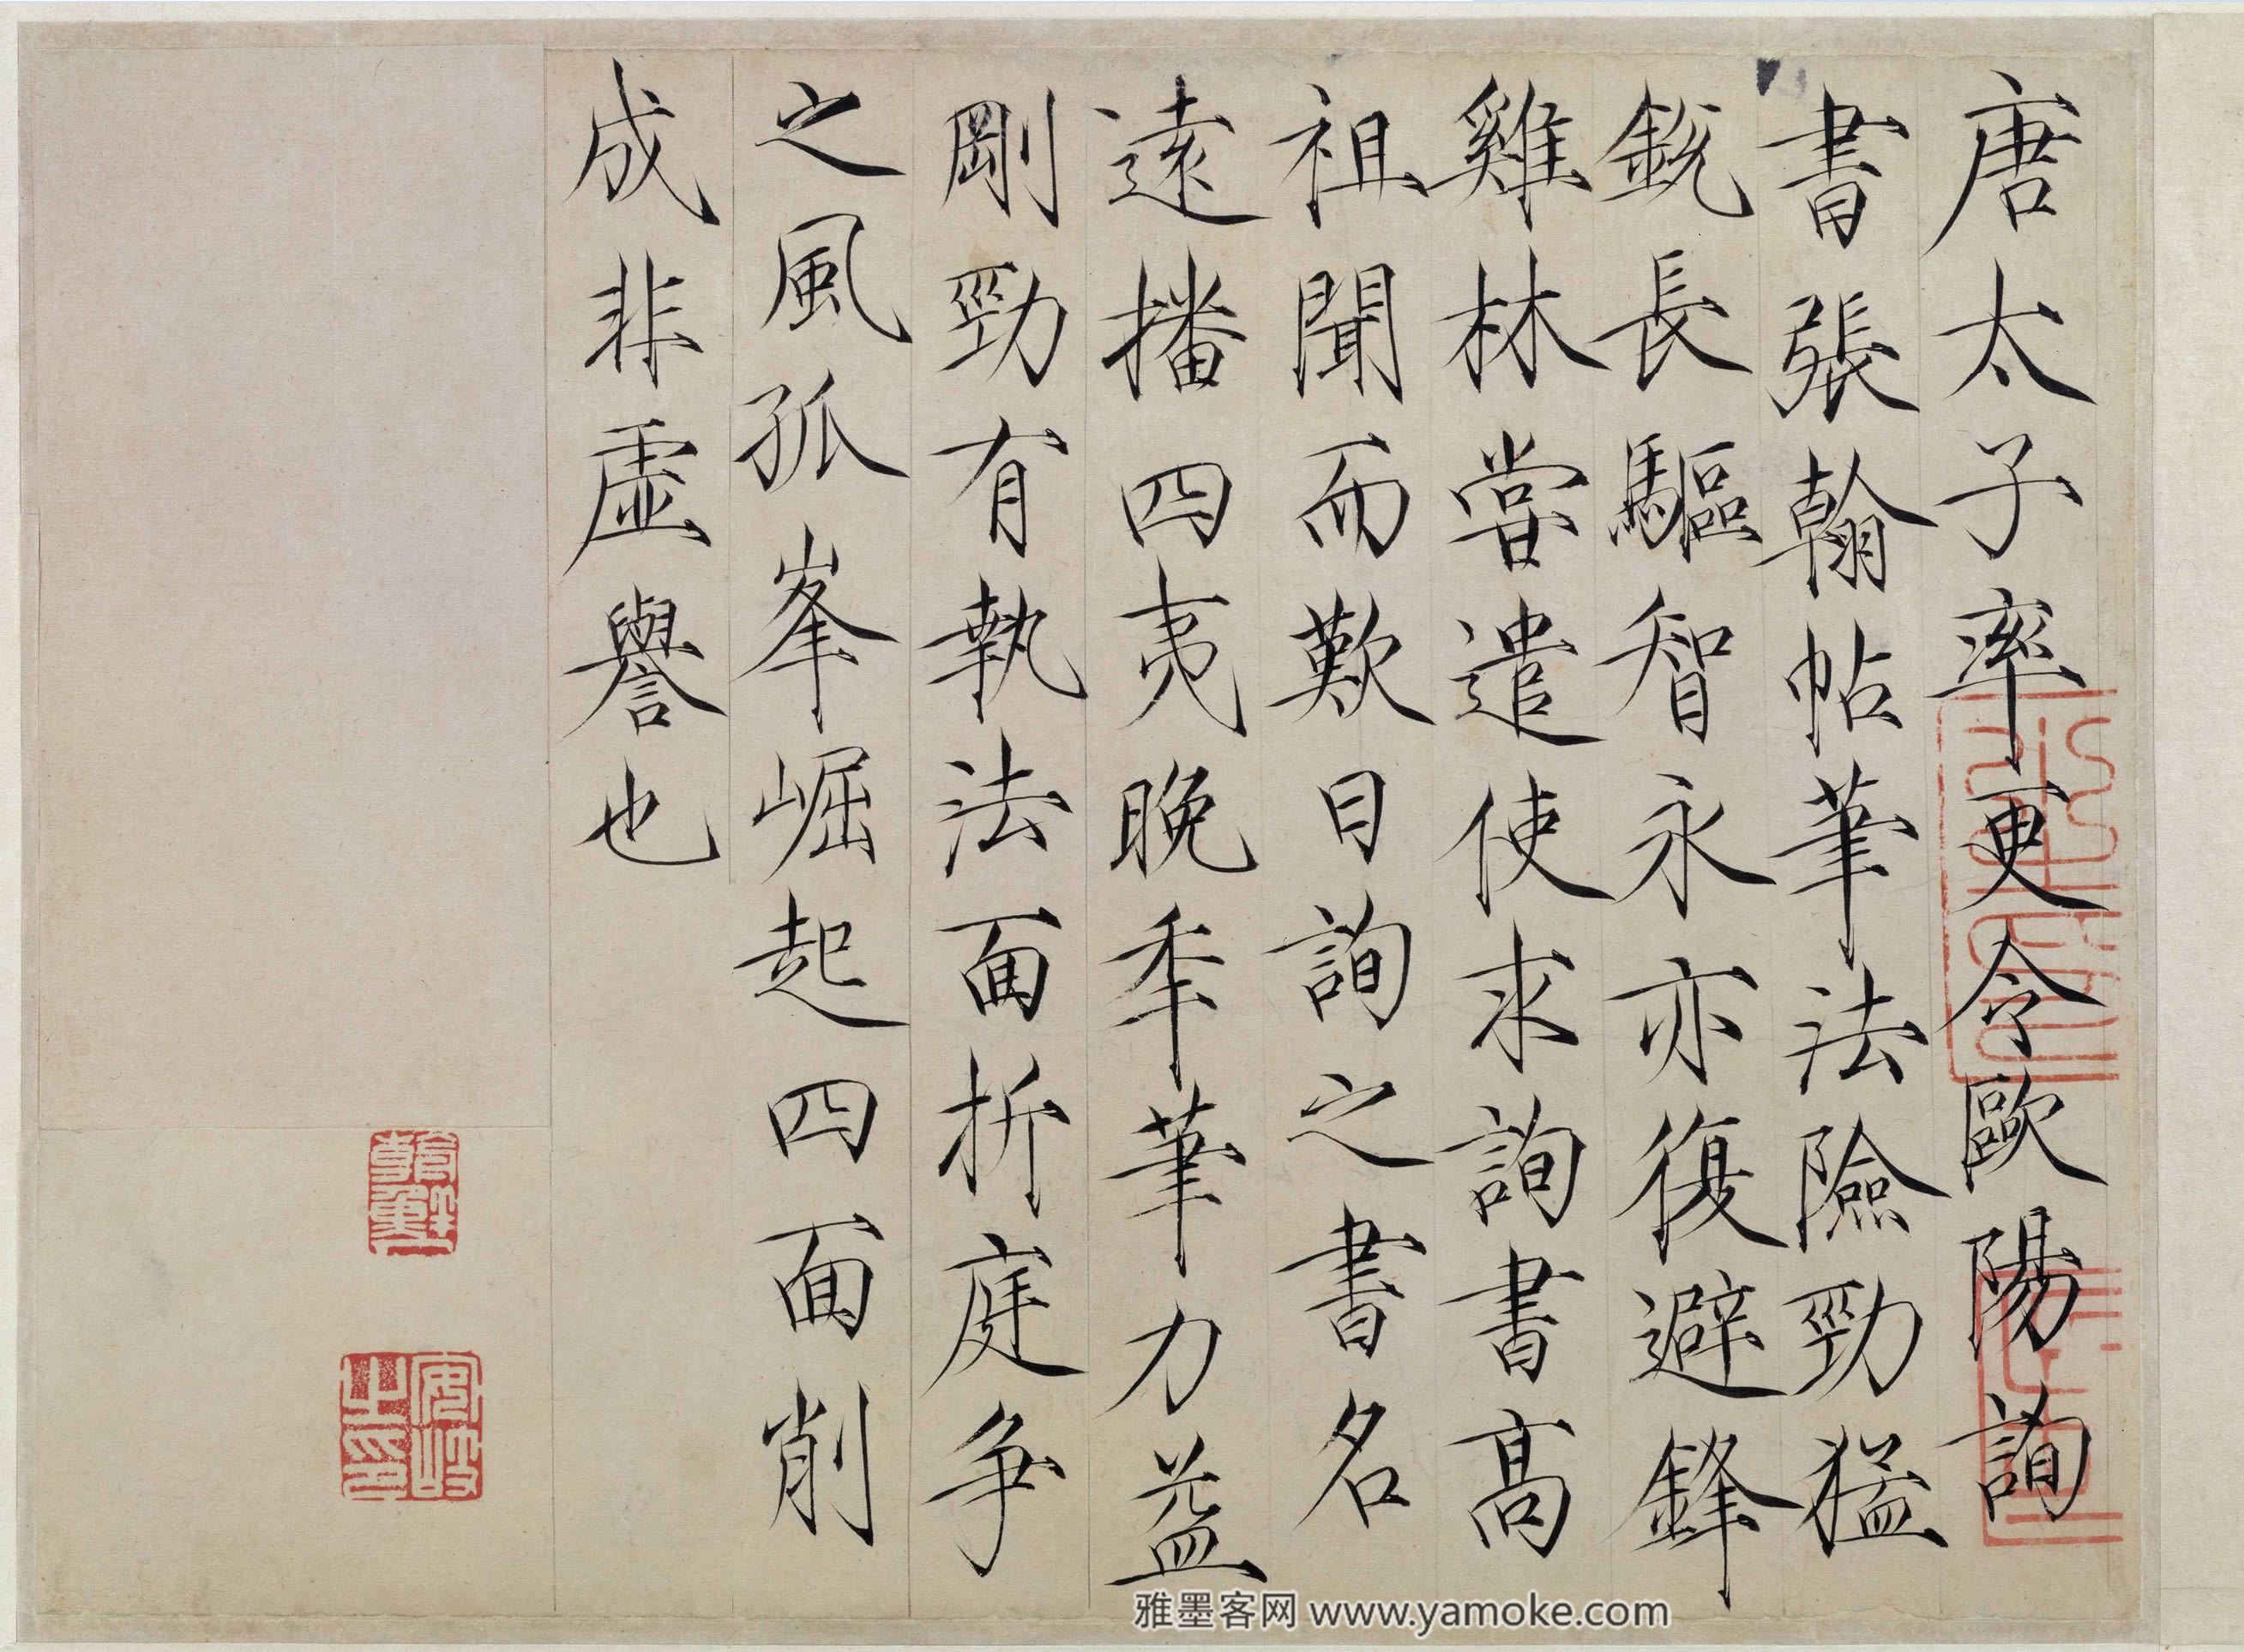 唐太子率更令歐陽詢
書張翰帖筆法險勁猛
銳長驅智永亦復避鋒
雞林嘗遣使求詢書高
祖聞而歎曰詢之書名
遠播四夷晚年筆力益
剛勁有執法面折庭爭
之風孤峯崛起四面削
成非虛譽也
雅墨客网 www.yamoke.com